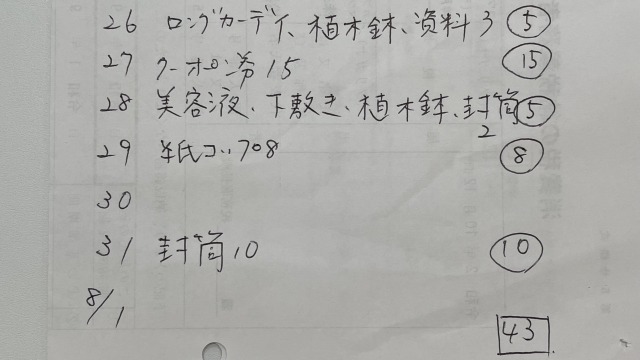 26 ロングカーディ、植木鉢、資料3 5
27 クーポン券15 15
28 美容液、下敷き、植木鉢、封筒2 5
29 紙コップ08 8
30
31 封筒10 10
8/1
43